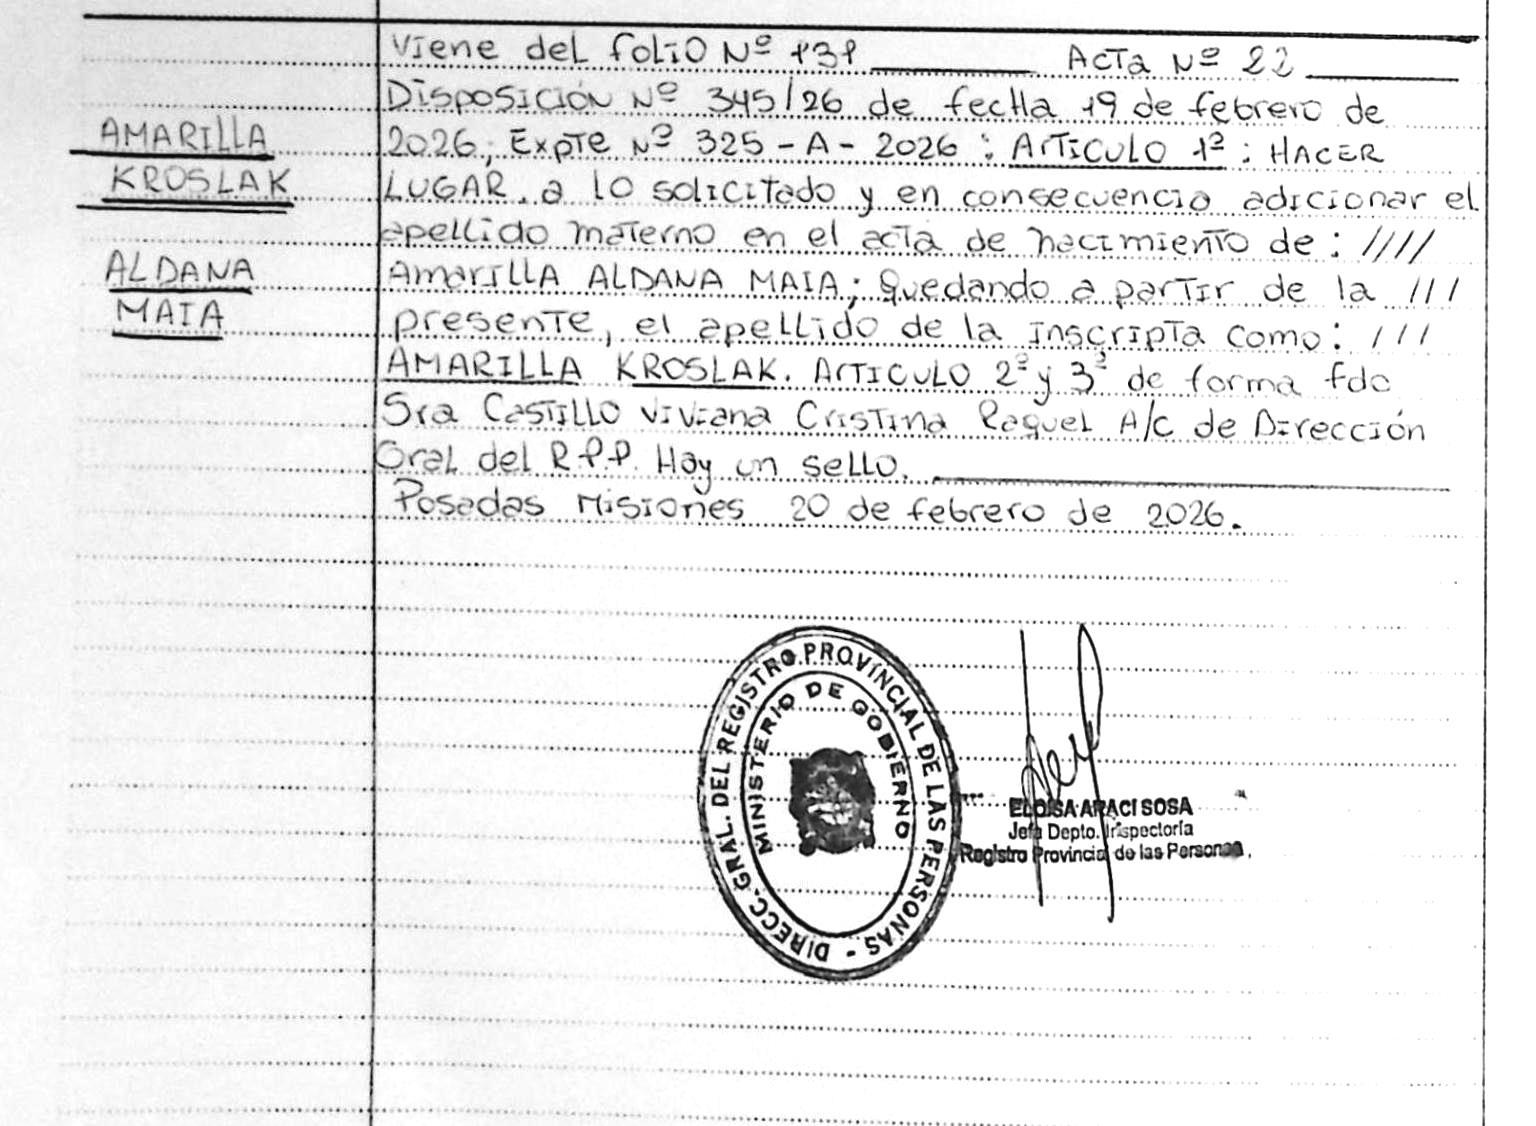 Viene del folio Nº 131 Acta Nº 22
Disposición Nº 345/26 de fecha 19 de febrero de
2026; Expte Nº 325-A-2026: Articulo 1º: HACER
LUGAR. a lo solicitado y en consecuencia adicionar el
apellido materno en el acta de nacimiento de: ////
Amarilla ALDANA MAIA; quedando a partir de la ///
presente, el apellido de la inscripta como: ///
AMARILLA KROSLAK. Articulo 2º y 3º de forma fdo
Sra Castillo Viviana Cristina Raquel A/C de Dirección
Gral del R.P.P. Hay un sello.
Posadas Misiones 20 de febrero de 2026.
AMARILLA
KROSLAK
ALDANA
MAIA
DIRECC. GRAL. DEL REGISTRO PROVINCIAL DE LAS PERSONAS -
MINISTERIO DE GOBIERNO
ELOISA ARACI SOSA
Jefa Depto. Inspectoría
Registro Provincial de las Personas